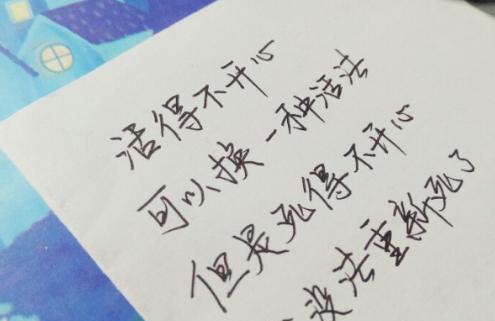 活得不开心
可以换一种活法
但是死得不开心
没法重新死了